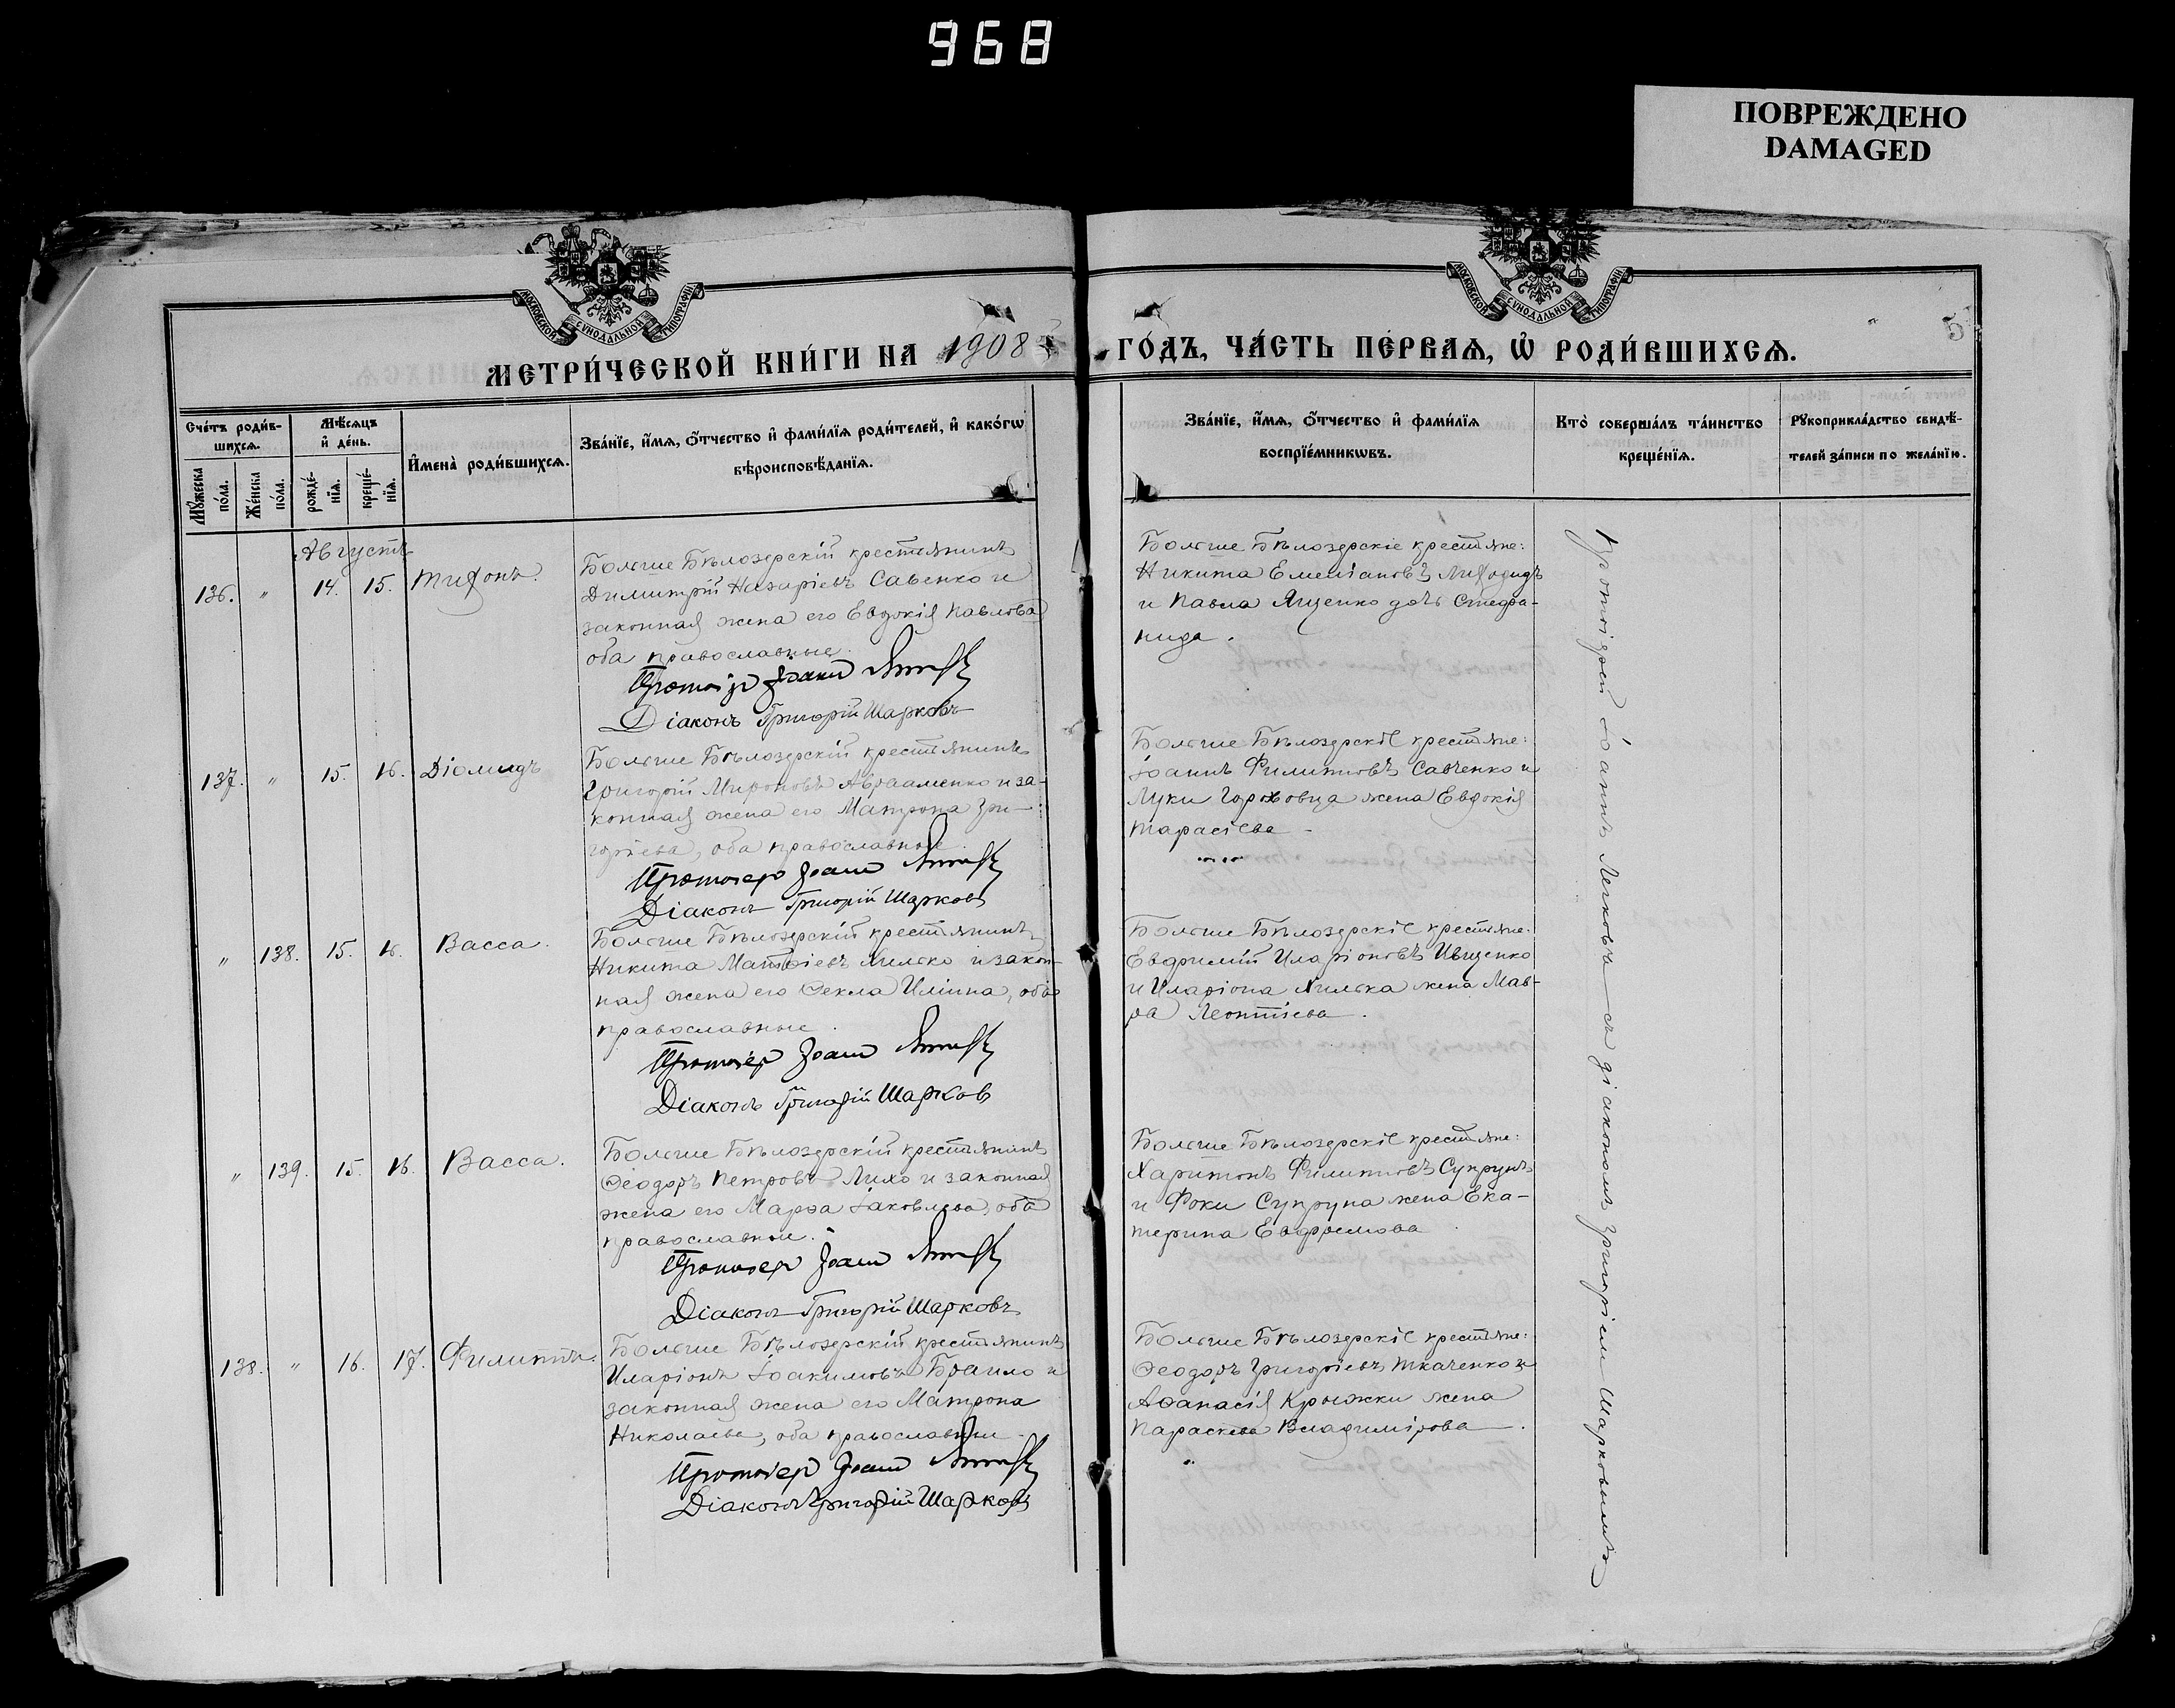 968
ПОВРЕЖДЕНО
DAMAGED
МОСКОВСКОЙ СѴНОДАЛЬНОЙ ТИПОГРАФІИ
МОСКОВСКОЙ СѴНОДАЛЬНОЙ ТИПОГРАФІИ
5
МЕТРИ́ЧЕСКОЙ КНИ́ГИ НА 1908
ГО́ДЪ, ЧА́СТЬ ПЕ́РВАѦ, Ѡ҆ РОДИ́ВШИХСѦ.
Сче́тъ роди́в-
шихсѧ.
Мѣ́сѧцъ
и҆ де́нь.
Мꙋ́жеска
по́ла.
Же́нска
по́ла.
рожде́-
нїѧ.
креще́-
нїѧ.
И҆мена̀ роди́вшихсѧ.
Зва́нїе, и҆́мѧ, ѻ҆́тчество и҆ фами́лїѧ роди́телей, и҆ како́гѡ
вѣроисповѣ́данїѧ.
Зва́нїе, и҆́мѧ, ѻ҆́тчество и҆ фами́лїѧ
воспрїе́мникѡвъ.
Кто̀ соверша́лъ та́инство
креще́нїѧ.
Рꙋкоприкла́дство свидѣ́-
телей за́писи по жела́нїю.
Августъ
136. " 14. 15. Тихонъ.
Больше Бѣлозерскій крестьянинъ
Димитрій Назаріевъ Савенко и
законная жена его Евдокія Павлова
оба православные.
Протоіер Іоанн
Діаконъ Григорій Шарковъ
Больше Бѣлозерскіе крестьяне:
Никита Емеліановъ Лиходидъ
и Павла Яценко дочь Стефа-
нида.
137. " 15. 16. Діомидъ
Больше Бѣлозерскій крестьянинъ
Григорій Мироновъ Авраменко и за-
конная жена его Матрона Гри-
горіева, оба православные.
Протоіер Іоанн
Діаконъ Григорій Шарковъ
Больше Бѣлозерскіе крестьяне:
Іоаннъ Филипповъ Савченко и
Луки Гороховца жена Евдокія
Тарасіева
" 138. 15. 16. Васса.
Больше Бѣлозерскій крестьянинъ
Никита Матѳіевъ Хилько и закон-
ная жена его Ѳекла Иліина, оба
православные.
Протоіер Іоанн
Діаконъ Григорій Шарков
Больше Бѣлозерскіе крестьяне:
Евфимій Иларіоновъ Иващенко
и Иларіона Хилька жена Мав-
ра Леонтіева.
" 139. 15. 16. Васса.
Больше Бѣлозерскій крестьянинъ
Ѳеодоръ Петровъ Лихо и законная
жена его Марѳа Іаковлева, оба
православные.
Протоіер Іоанн
Діаконъ Григорій Шарковъ
Больше Бѣлозерскіе крестьяне:
Харитонъ Филипповъ Супрунъ
и Фоки Супруна жена Ека-
терина Евфремова
138. " 16. 17. Филиппъ.
Больше Бѣлозерскій крестьянинъ
Иларіонъ Іоакимовъ Браило и
законная жена его Матрона
Николаева, оба православные.
Протоіер Іоанн
Діаконъ Григорій Шарковъ
Больше Бѣлозерскіе крестьяне:
Ѳеодоръ Григоріевъ Ткаченко и
Аѳанасія Крыжки жена
Параскева Владимірова.
Протоіерей Іоаннъ Легковъ съ діакономъ Григоріемъ Шарковымъ